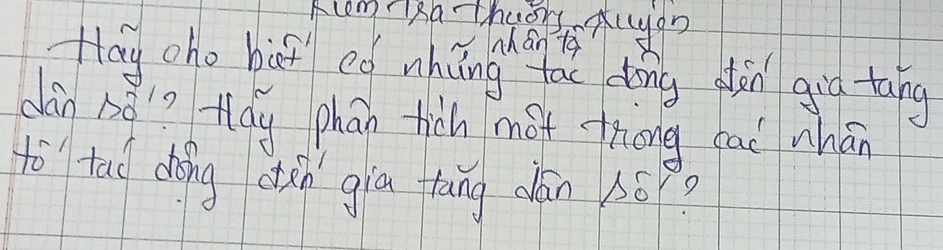 Kiểm tra thường xuyên
nhân tố
Hãy cho biết có những tác động đến gia tăng
dân số? Hãy phân tích một trong các nhân
tố tác động đến gia tăng dân số?